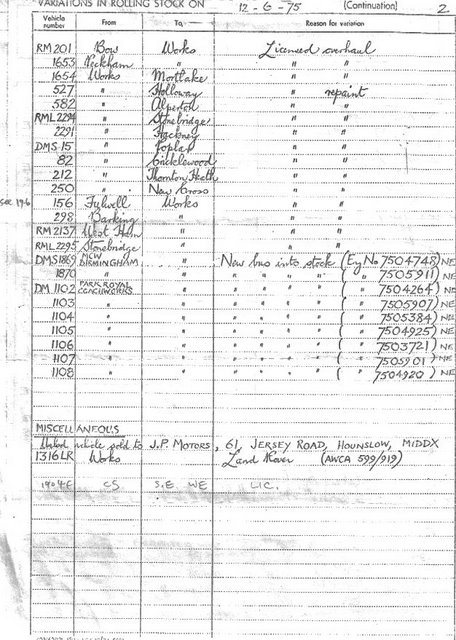 VARIATIONS IN ROLLING STOCK ON 12-6-75 (Continuation) 2
Vehicle number From To Reason for variation
RM 201 Bow Works Licensed overhaul
1653 Peckham " " "
1654 Works Mortlake " "
527 " Holloway " repaint
582 " Alperton " "
RML 2294 " Stonebridge " "
2291 " Hackney " "
DMS 15 " Poplar " "
82 " Cricklewood " "
212 " Thornton Heath " "
250 " New Cross " "
see 19.6 156 Fulwell Works " "
298 Barking " " "
RM 2137 West Ham " " "
RML 2295 Stonebridge " " "
DMS 1869 MCW BIRMINGHAM " New bus into stock (Eng No 7504748) NE
1870 " " " " " " ( " 7505911) NE
DM 1102 PARK ROYAL COACHWORKS " " " " " ( " 7504264) NE
1103 " " " " " " ( " 7505907) NE
1104 " " " " " " ( " 7505384) NE
1105 " " " " " " ( " 7504925) NE
1106 " " " " " " ( " 7503721) NE
1107 " " " " " " ( " 7505901) NE
1108 " " " " " " ( " 7504920) NE
MISCELLANEOUS
vehicle sold to J.P. MOTORS, 61, JERSEY ROAD, HOUNSLOW, MIDDX
1316LR Works Land Rover (AWCA 599/919)
1904F CS S.E. WE LIC.